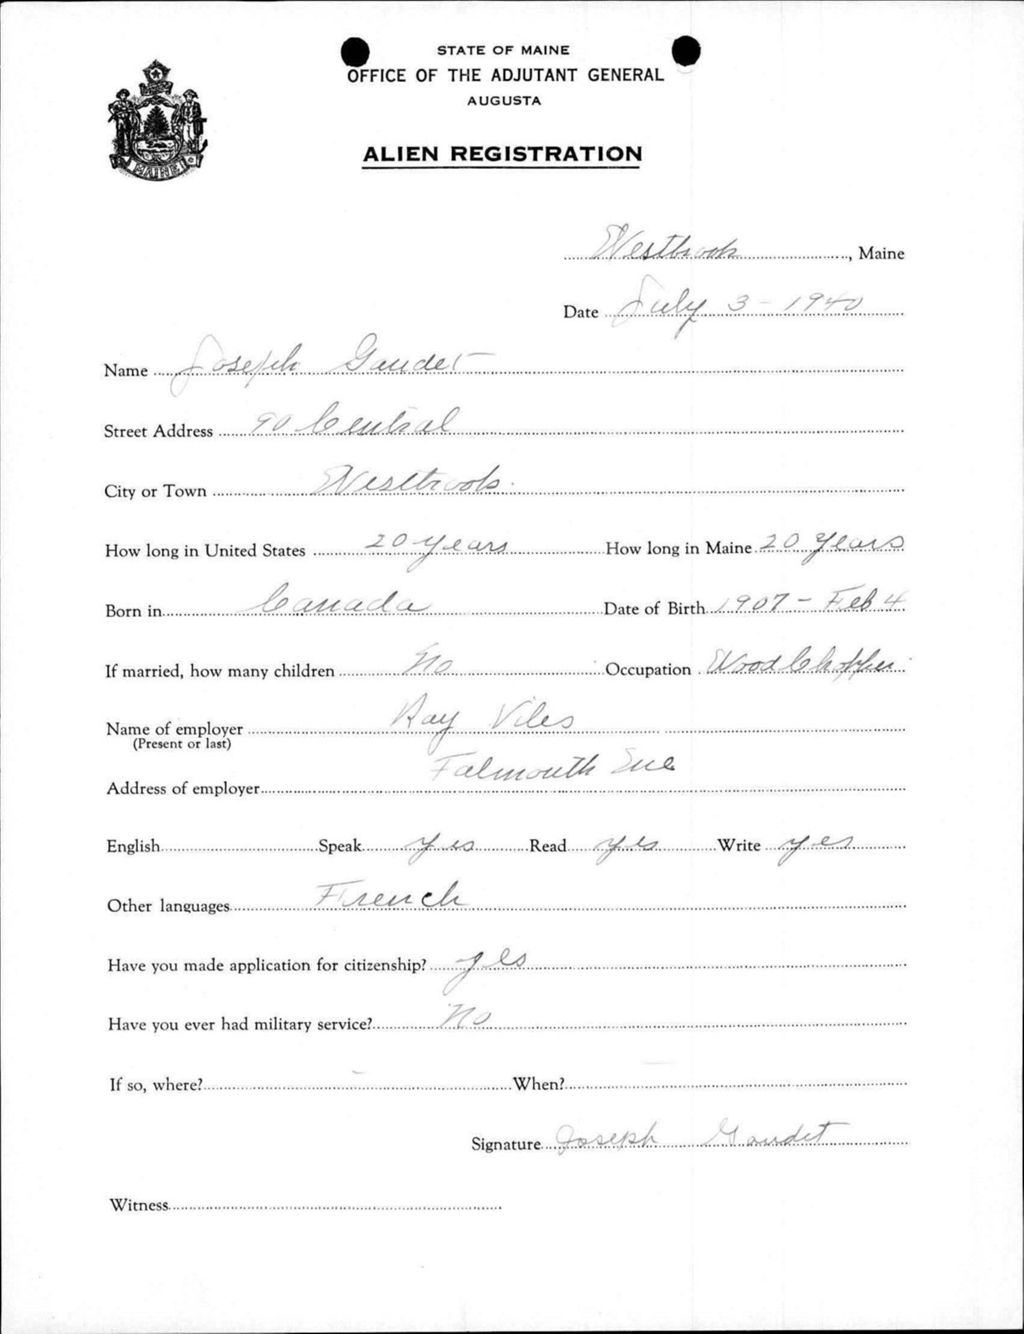 STATE OF MAINE
OFFICE OF THE ADJUTANT GENERAL
AUGUSTA
ALIEN REGISTRATION
MAINE
Westbrook, Maine
Date July 3 - 1940
Name Joseph Gaudet
Street Address 90 Central
City or Town Westbrook.
How long in United States 20 years How long in Maine 20 years
Born in Canada Date of Birth 1907 - Feb 4
If married, how many children No Occupation Wood Chopper
Name of employer Ray Viles
(Present or last)
Address of employer Falmouth
English Speak yes Read yes Write yes
Other languages French
Have you made application for citizenship? yes
Have you ever had military service? No
If so, where? - When? -
Signature Joseph Gaudet
Witness